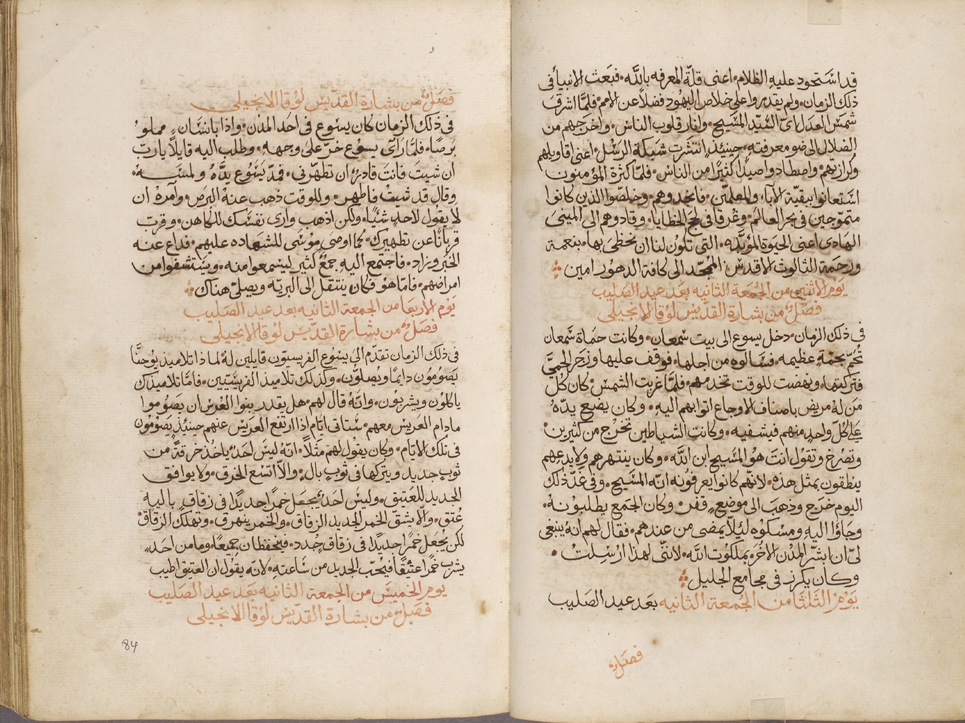 قد استحود عليه الظلام۰ اعنى قلة المعرفه بالله۰ فبعث الانبيا فى
ذلك الزمان۰ ولم يقدروا على خلاص اليهود فضلاً عن الامم۰ فلما اشرقت
شمس العدل اى السيد المسيح۰ وانار قلوب الناس۰ واخرجهم من
الضلال الى ضو معرفته۰ حينيذ انتشرت شبكة الرسل۰ اعنى اقاويلهم
وكرازتهم۰ واصطادوا صيداً كثيراً من الناس۰ فلما كثرة المؤمنون
استعانوا ببقية الابا۰ والمعلمين۰ فانجدوهم۰ وخلصوا الذين كانوا
متموجين فى بحر العالم۰ وغرقا فى لجج الخطايا۰ وقادوهم الى المينى
الهادى اعنى الحيوة المؤبده۰ التى تكون لنا ان نحظى بها۰ بنعمة
ورحمة الثالوث الاقدس الممجد الى كافة الدهور امين
يوم الاثنين من الجمعة الثانيه بعد عيد الصليب
فصل من بشارة القديس لوقا الانجيلى
فى ذلك الزمان۰ دخل يسوع الى بيت سمعان۰ وكانت حماة سمعان
تحم بحمة عظيمه۰ فسالوه من اجلها۰ فوقف عليها وزجر الحمى
فتركتها۰ ونهضت للوقت تخدمهم۰ فلما غربت الشمس۰ كان كل
من له مريض باصناف الاوجاع اتوا بهم اليه۰ وكان يضع يده
على كل واحد منهم فيشفيه۰ وكانت الشياطين تخرج من كثيرين
وتصرخ وتقول انت هو المسيح ابن الله۰ وكان ينتهرهم ولا يدعهم
ينطقون بمثل هذه۰ لانهم كانوا يعرفونه انه المسيح۰ وفى غد ذلك
اليوم خرج وذهب الى موضع قفر۰ وكان الجمع يطلبونه۰
وجاؤا اليه ومسكوه ليلا يمضى من عندهم۰ فقال لهم انه ينبغى
لى ان ابشر المدن الاخر بملكوت الله۰ لاننى لهذا ارسلت۰
وكان يكرز فى مجامع الجليل
يوم الثلثا من الجمعة الثانيه بعد عيد الصليب
فصل
فصل من بشارة القديس لوقا الانجيلى
فى ذلك الزمان كان يسوع فى احد المدن۰ واذا بانسان مملو
برصاً۰ فلما راى يسوع خر على وجهه۰ وطلب اليه قايلاً يارب
ان شيت فانت قادر ان تطهرنى۰ فمد يسوع يده ولمسه۰
وقال قد شيت فاطهر۰ وللوقت ذهب عنه البرص۰ وامره ان
لا يقول لاحد شيا۰ ولكن اذهب وارى نفسك للكاهن۰ وقرب
قرباناً عن تطهيرك كما اوصى موسى للشهاده عليهم۰ فذاع عنه
الخبر وزاد۰ فاجتمع اليه جمع كثير ليسمعوا منه۰ ويستشفوا من
امراضهم۰ فاما هو فكان ينتقل الى البريه ويصلى هناك
يوم الاربعا من الجمعة الثانيه بعد عيد الصليب
فصل من بشارة القديس لوقا الانجيلى
فى ذلك الزمان تقدم الى يسوع الفريسيون قايلين له لماذا تلاميذ يوحنا
يصومون دايماً ويصلون۰ وكذلك تلاميذ الفريسيين۰ فاما تلاميذك
ياكلون ويشربون۰ وانه قال لهم۰ هل يقدر بنوا العرس ان يصوموا
مادام العريس معهم۰ ستاتى ايام اذا ارتفع العريس عنهم حينيذ يصومون
فى تلك الايام۰ وكان يقول لهم مثلاً۰ انه ليس احد ياخذ خرقة من
ثوب جديد ويتركها فى ثوب بال۰ والا اتسع الخرق۰ ولا يوافق
الجديد للعتيق۰ وليس احد يجعل خمراً جديداً فى زقاق باليه
عتق۰ والا يشق الخمر الجديد الزقاق۰ والخمر ينهرق۰ وتهلك الزقاق
لكن يجعل خمراً جديداً فى زقاق جدد۰ فيحفظان جميعاً۰ وما من احد
يشرب خمراً عتيقاً فيحب الجديد من ساعته۰ لانه يقول ان العتيق اطيب
يوم الخميس من الجمعة الثانيه بعد عيد الصليب
فصل من بشارة القديس لوقا الانجيلى
84